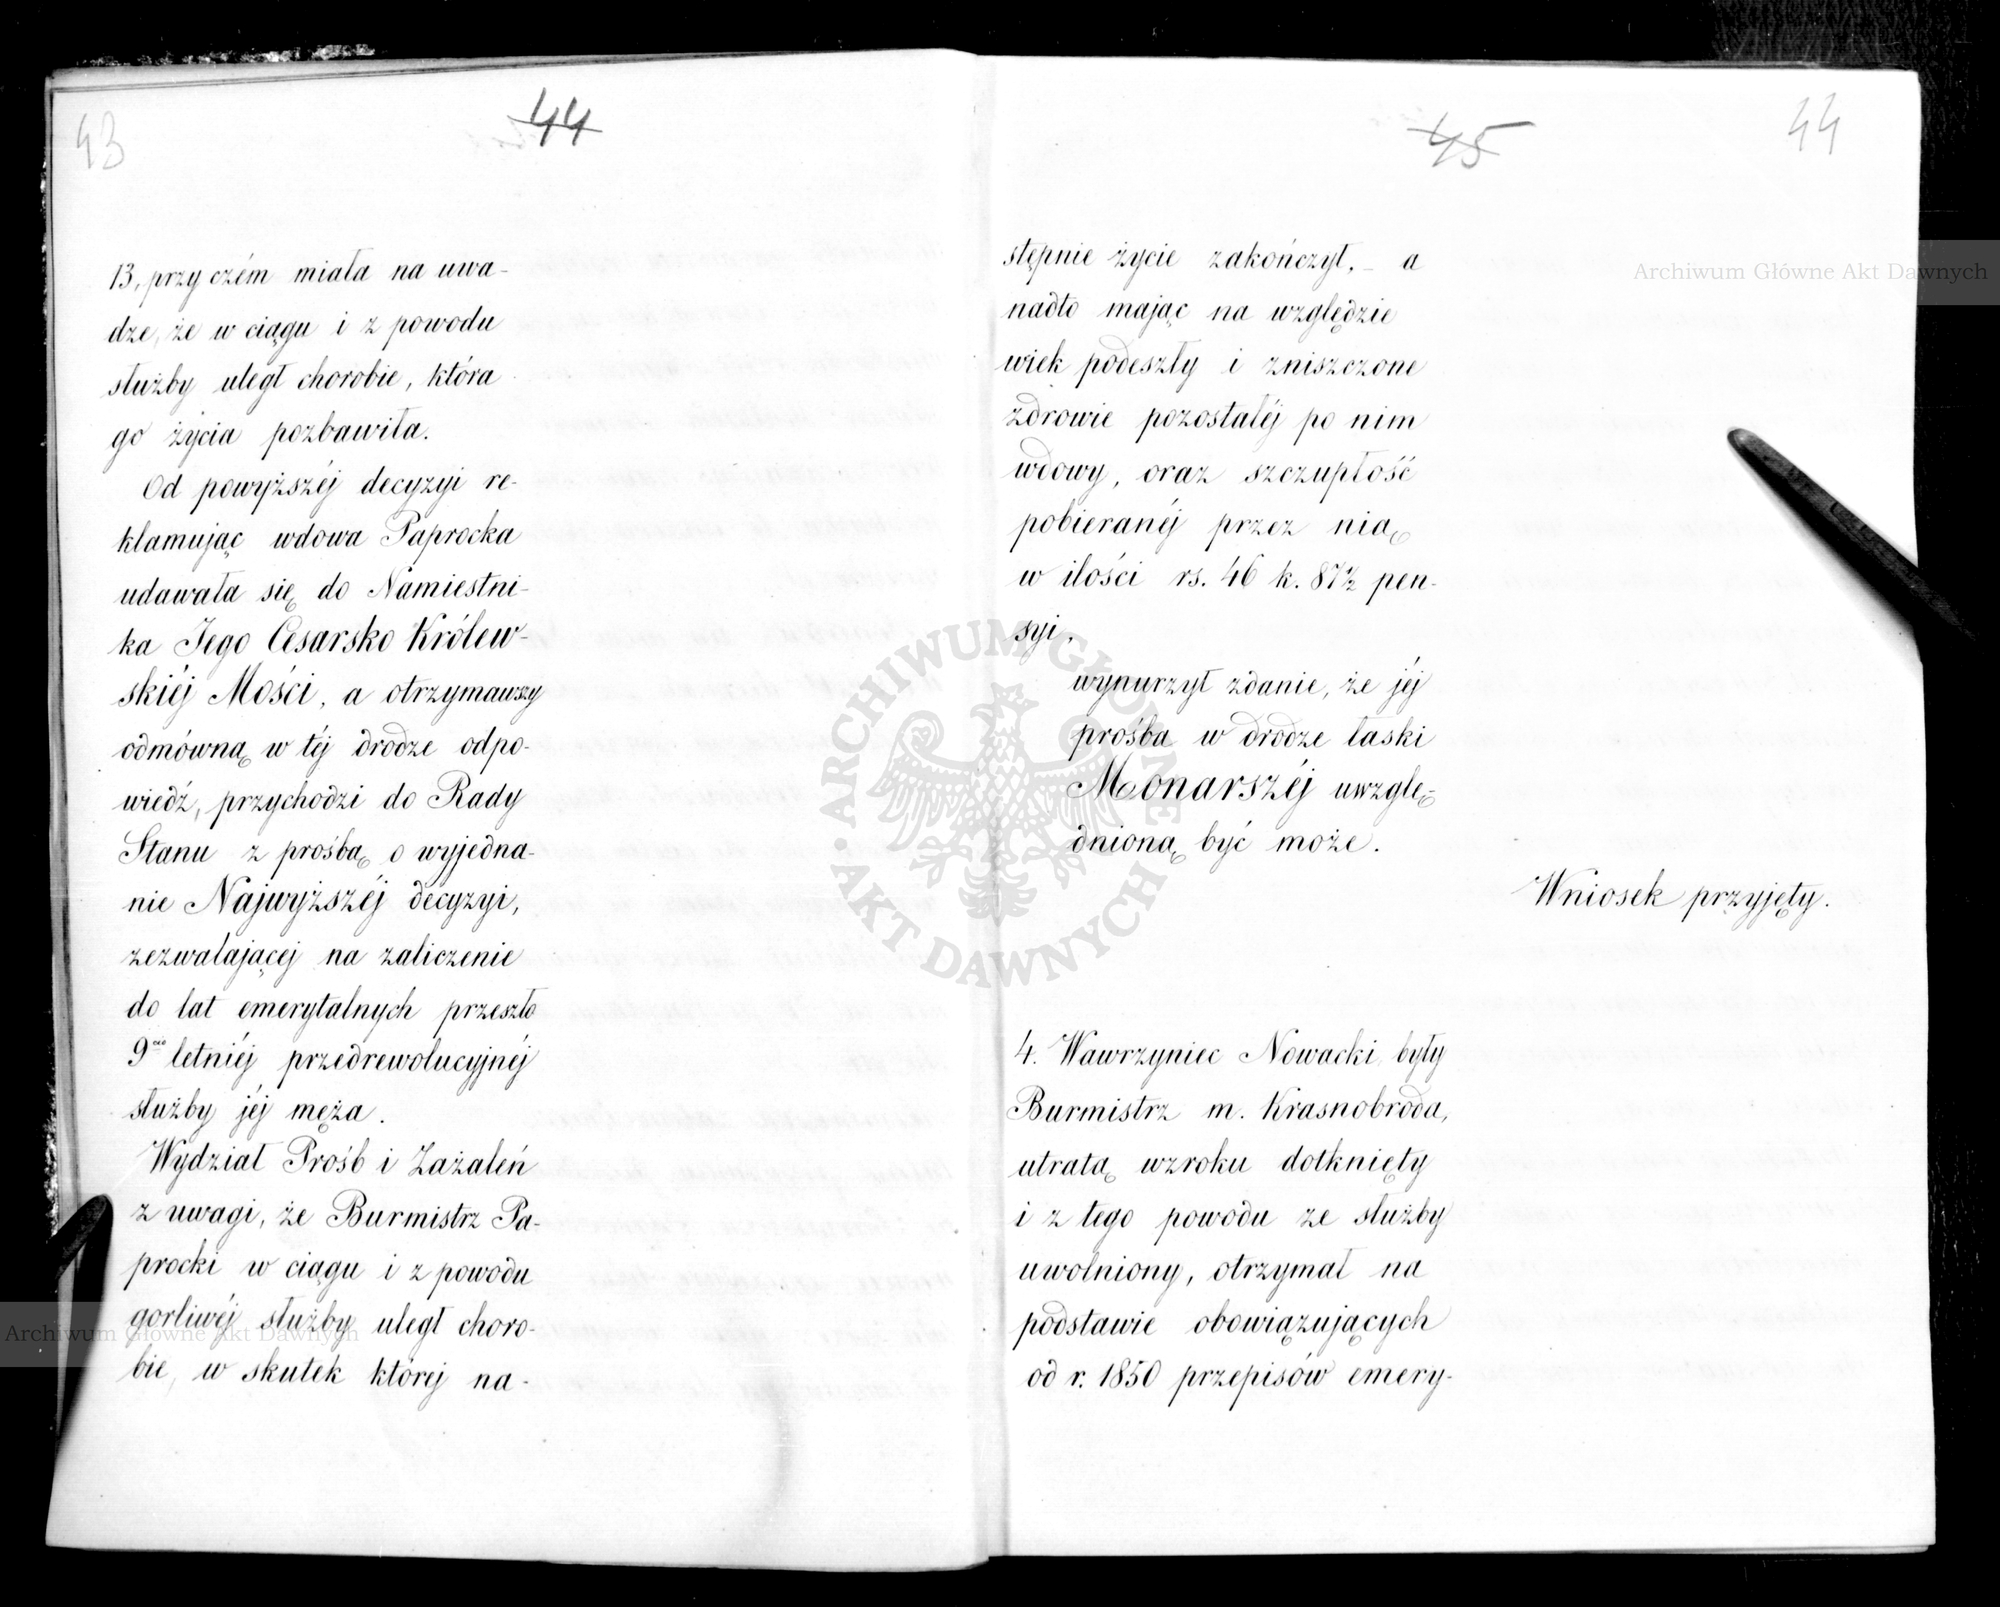 43
44
13, przyczém miała na uwa-
dze, że w ciągu i z powodu
służby uległ chorobie, która
go życia pozbawiła.
Od powyższéj decyzyi re-
klamując wdowa Paprocka
udawała się do Namiestni-
ka Jego Cesarsko Królew-
skiéj Mości, a otrzymawszy
odmówną w téj drodze odpo-
wiedź, przychodzi do Rady
Stanu z prośbą o wyjedna-
nie Najwyższéj decyzyi,
zezwalającej na zaliczenie
do lat emerytalnych przeszło
9cio letniéj przedrewolucyjnéj
służby jéj męża.
Wydział Prośb i Zażaleń
z uwagi, że Burmistrz Pa-
procki w ciągu i z powodu
gorliwéj służby uległ choro-
bie, w skutek której na-
45
44
stępnie życie zakończył, - a
nadto mając na względzie
wiek podeszły i zniszczone
zdrowie pozostałéj po nim
wdowy, oraz szczupłość
pobieranéj przez nią
w ilości rs. 46 k. 87½ pen-
syi,
wynurzył zdanie, że jéj
prośba w drodze łaski
Monarszéj uwzglę-
dnioną być może.
Wniosek przyjęty.
4. Wawrzyniec Nowacki, były
Burmistrz m. Krasnobroda,
utratą wzroku dotknięty
i z tego powodu ze służby
uwolniony, otrzymał na
podstawie obowiązujących
od r. 1850 przepisów emery-
Archiwum Główne Akt Dawnych
Archiwum Główne Akt Dawnych
ARCHIWUM GŁÓWNE AKT DAWNYCH